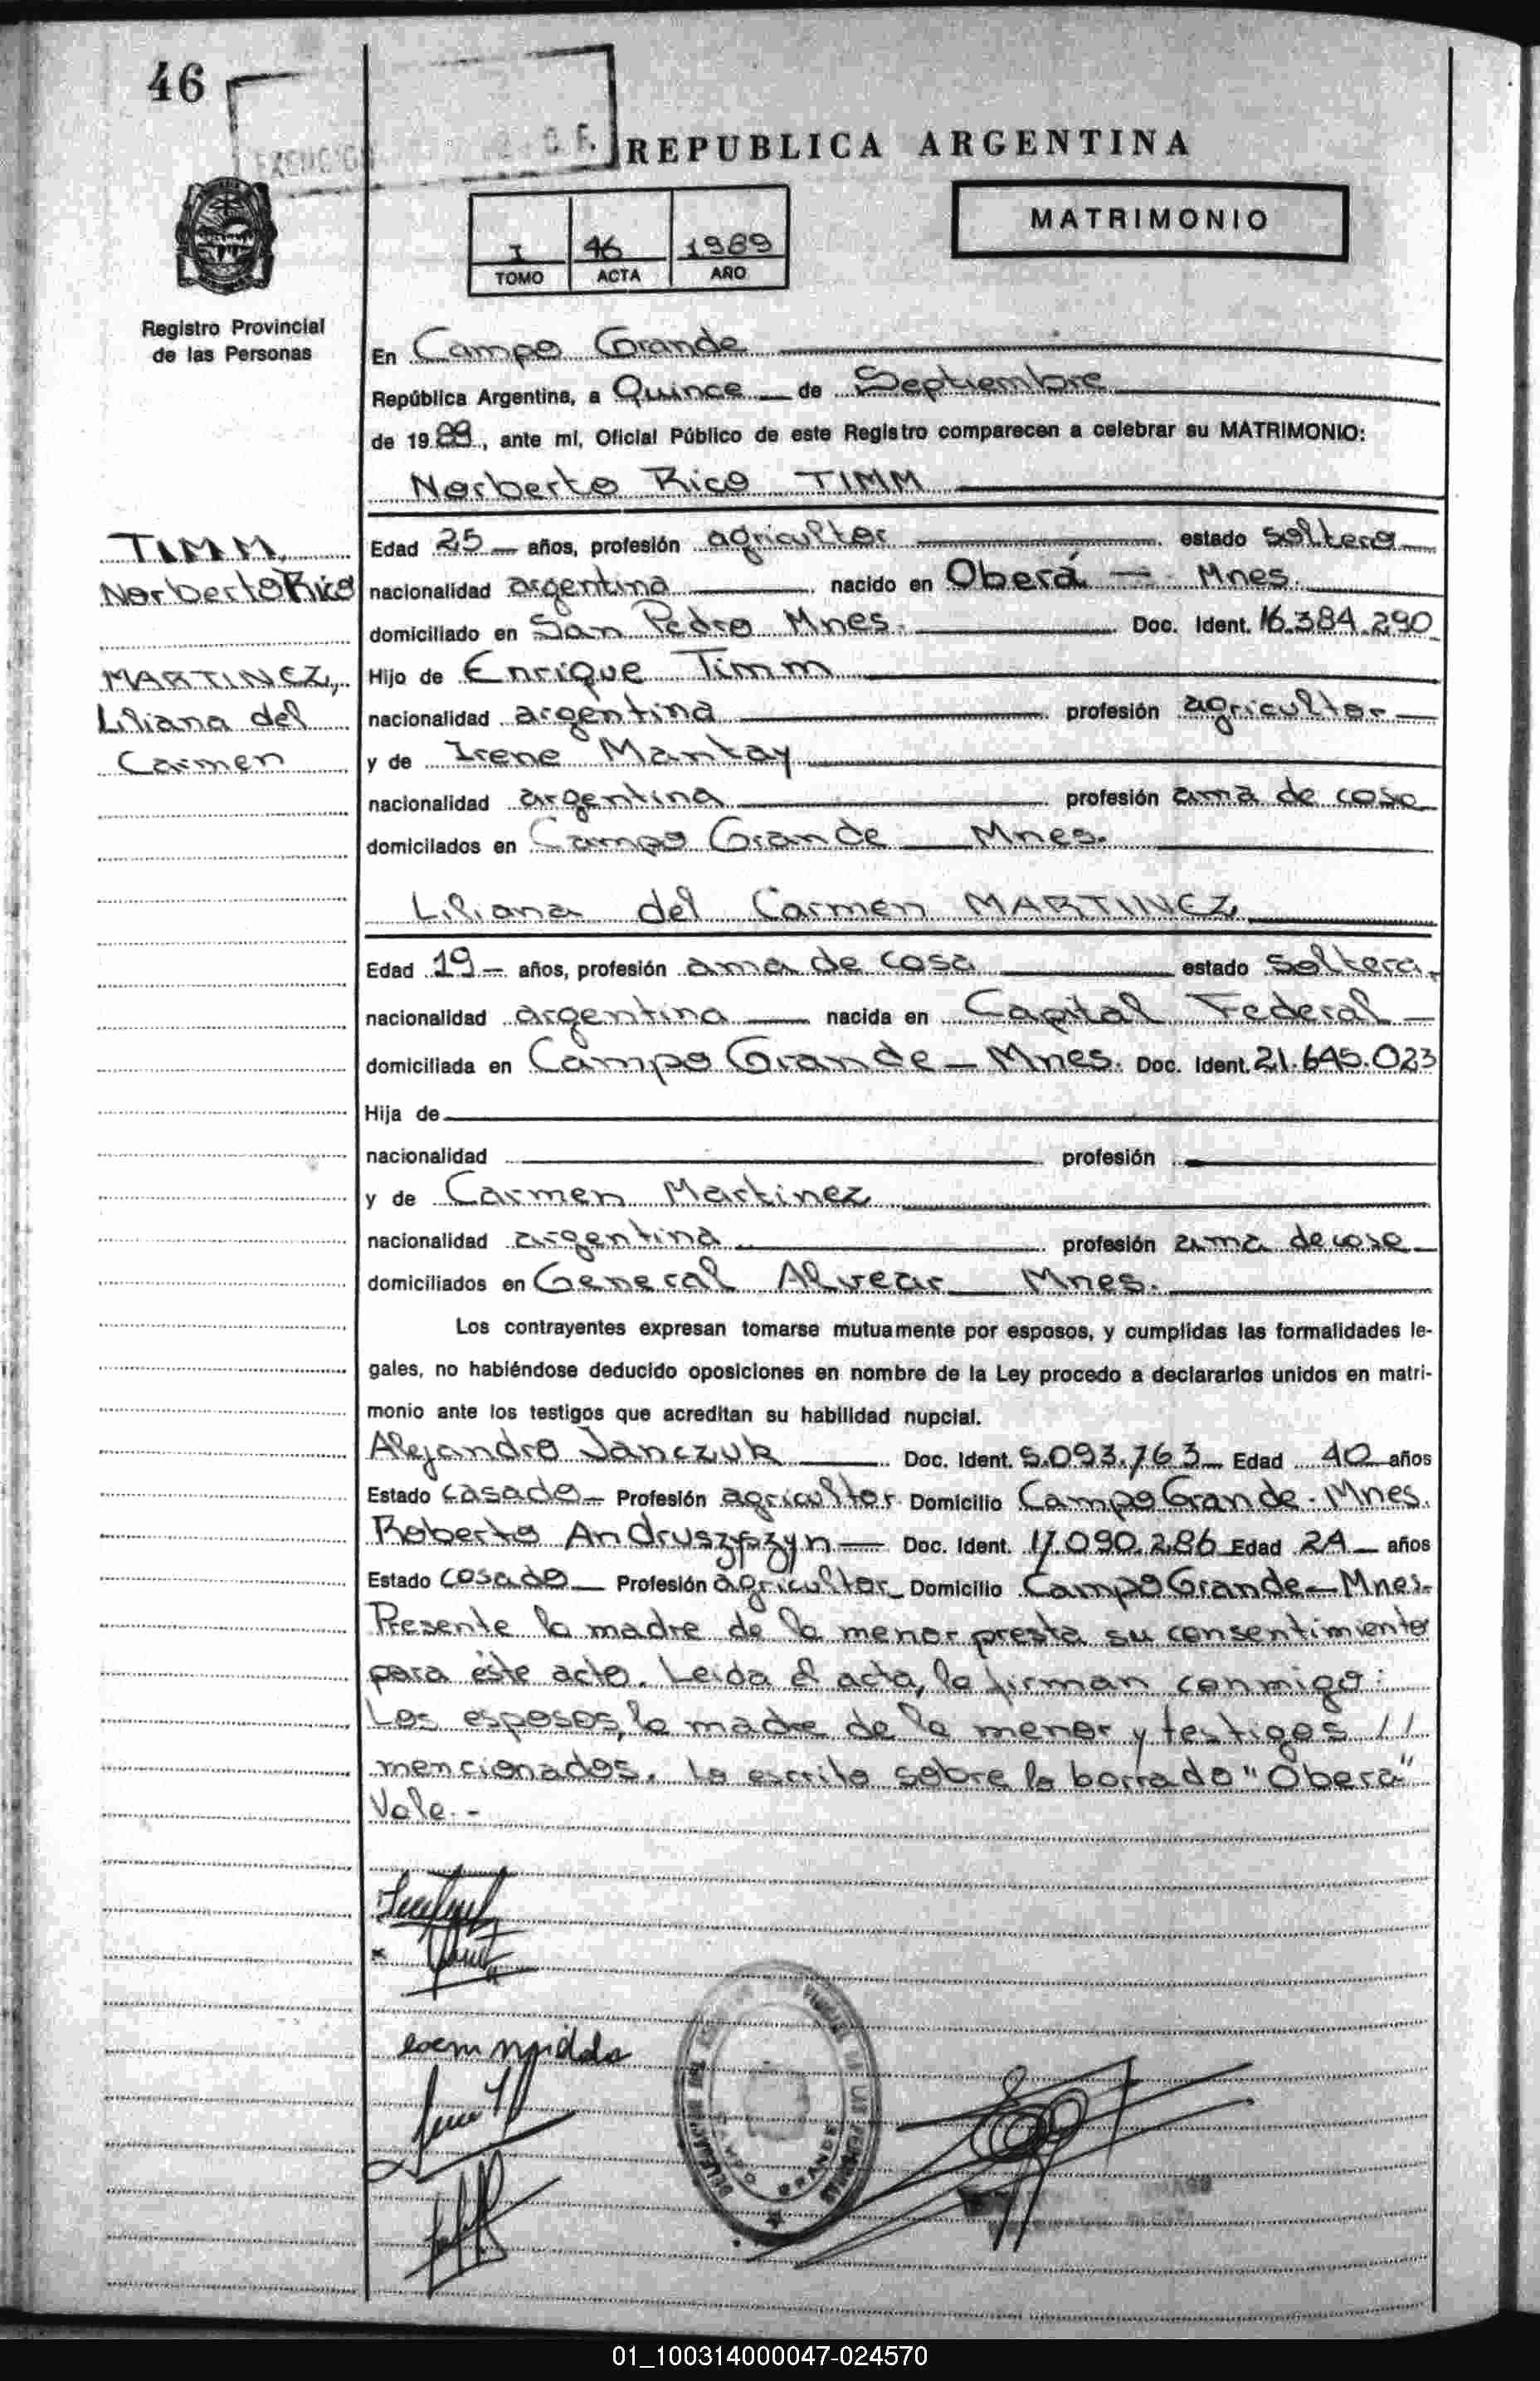 46
REPUBLICA ARGENTINA
MATRIMONIO
I 46 1989
TOMO ACTA AÑO
Registro Provincial
de las Personas
En Campo Grande
República Argentina, a Quince de Septiembre
de 1989, ante mí, Oficial Público de este Registro comparecen a celebrar su MATRIMONIO:
Norberto Rico TIMM
TIMM,
Norberto Rico
MARTINEZ,
Liliana del
Carmen
Edad 25 años, profesión agricultor estado soltero
nacionalidad argentina nacido en Oberá - Mnes.
domiciliado en San Pedro Mnes. Doc. Ident. 16.384.290
Hijo de Enrique Timm
nacionalidad argentina profesión agricultor
y de Irene Mantay
nacionalidad argentina profesión ama de casa
domicilados en Campo Grande Mnes.
Liliana del Carmen MARTINEZ
Edad 19 años, profesión ama de casa estado soltera,
nacionalidad argentina nacida en Capital Federal
domiciliada en Campo Grande - Mnes. Doc. Ident. 21.645.023
Hija de
nacionalidad profesión
y de Carmen Martinez
nacionalidad argentina profesión ama de casa
domiciliados en General Alvear Mnes.
Los contrayentes expresan tomarse mutuamente por esposos, y cumplidas las formalidades le-
gales, no habiéndose deducido oposiciones en nombre de la Ley procedo a declararlos unidos en matri-
monio ante los testigos que acreditan su habilidad nupcial.
Alejandro Janczuk Doc. Ident. 5.093.763 Edad 40 años
Estado casado Profesión agricultor Domicilio Campo Grande - Mnes.
Roberto Doc. Ident. 17.090.286 Edad 24 años
Estado casado Profesión agricultor Domicilio Campo Grande - Mnes.
Presente la madre de la menor presta su consentimiento
para éste acto. Leida el acta, la firman conmigo:
Los esposos, la madre de la menor y testigos //
mencionados. Lo escrito sobre lo borrado "Oberá"
Vale.-
01_100314000047-024570